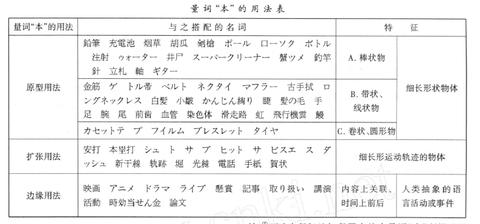 量词“本”的用法表
量词“本”的用法 与之搭配的名词 特征
原型用法
鉛筆 充電池 烟草 胡瓜 剣槍 ボール ローソク ボトル
注射 ウォーター 井戸 スーパークリーナー 蟹ツメ 釣竿
針 立札 軸 ギター
A.棒状物
金筋 ゲートル帯 ベルト ネクタイ マフラー 古手拭 ロ
ングネックレス 白髪 小皺 かんじん縒り 睫 髪の毛 手
足 腕 尾 前歯 血管 染色体 滑走路 虹 飛行機雲 鰻
B.带状、
线状物
カセットテープ フイルム ブレスレット タイヤ
C.卷状、圆形物
细长形状物体
扩张用法
安打 本塁打 シュート サーブ ヒット サービスエース ダ
ッシュ 新干線 軌跡 堀 光線 電話 手紙 賀状
细长形运动轨迹的物体
边缘用法
映画 アニメ ドラマ ライブ 懸賞 記事 取り扱い 講演
活動 時効当せん金 論文
内容上关联、
时间上前后
人类抽象的语
言活动或事件